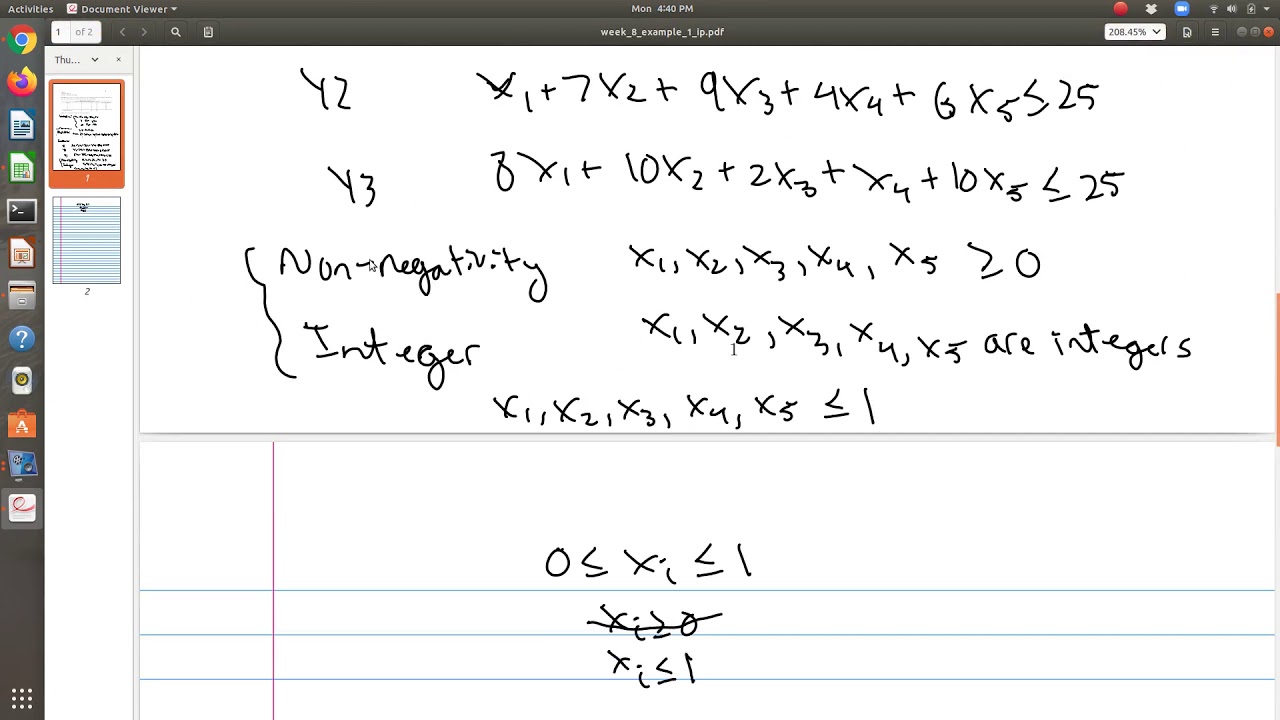 Activities Document Viewer Mon 4:40 PM
1 of 2 week_8_example_1_ip.pdf 208.45%
Thu...
1
2
Y2 x₁ + 7x₂ + 9x₃ + 4x₄ + 6x₅ ≤ 25
Y3 8x₁ + 10x₂ + 2x₃ + x₄ + 10x₅ ≤ 25
Non-negativity x₁, x₂, x₃, x₄, x₅ ≥ 0
Integer x₁, x₂, x₃, x₄, x₅ are integers
x₁, x₂, x₃, x₄, x₅ ≤ 1
0 ≤ xᵢ ≤ 1
xᵢ ≥ 0
xᵢ ≤ 1